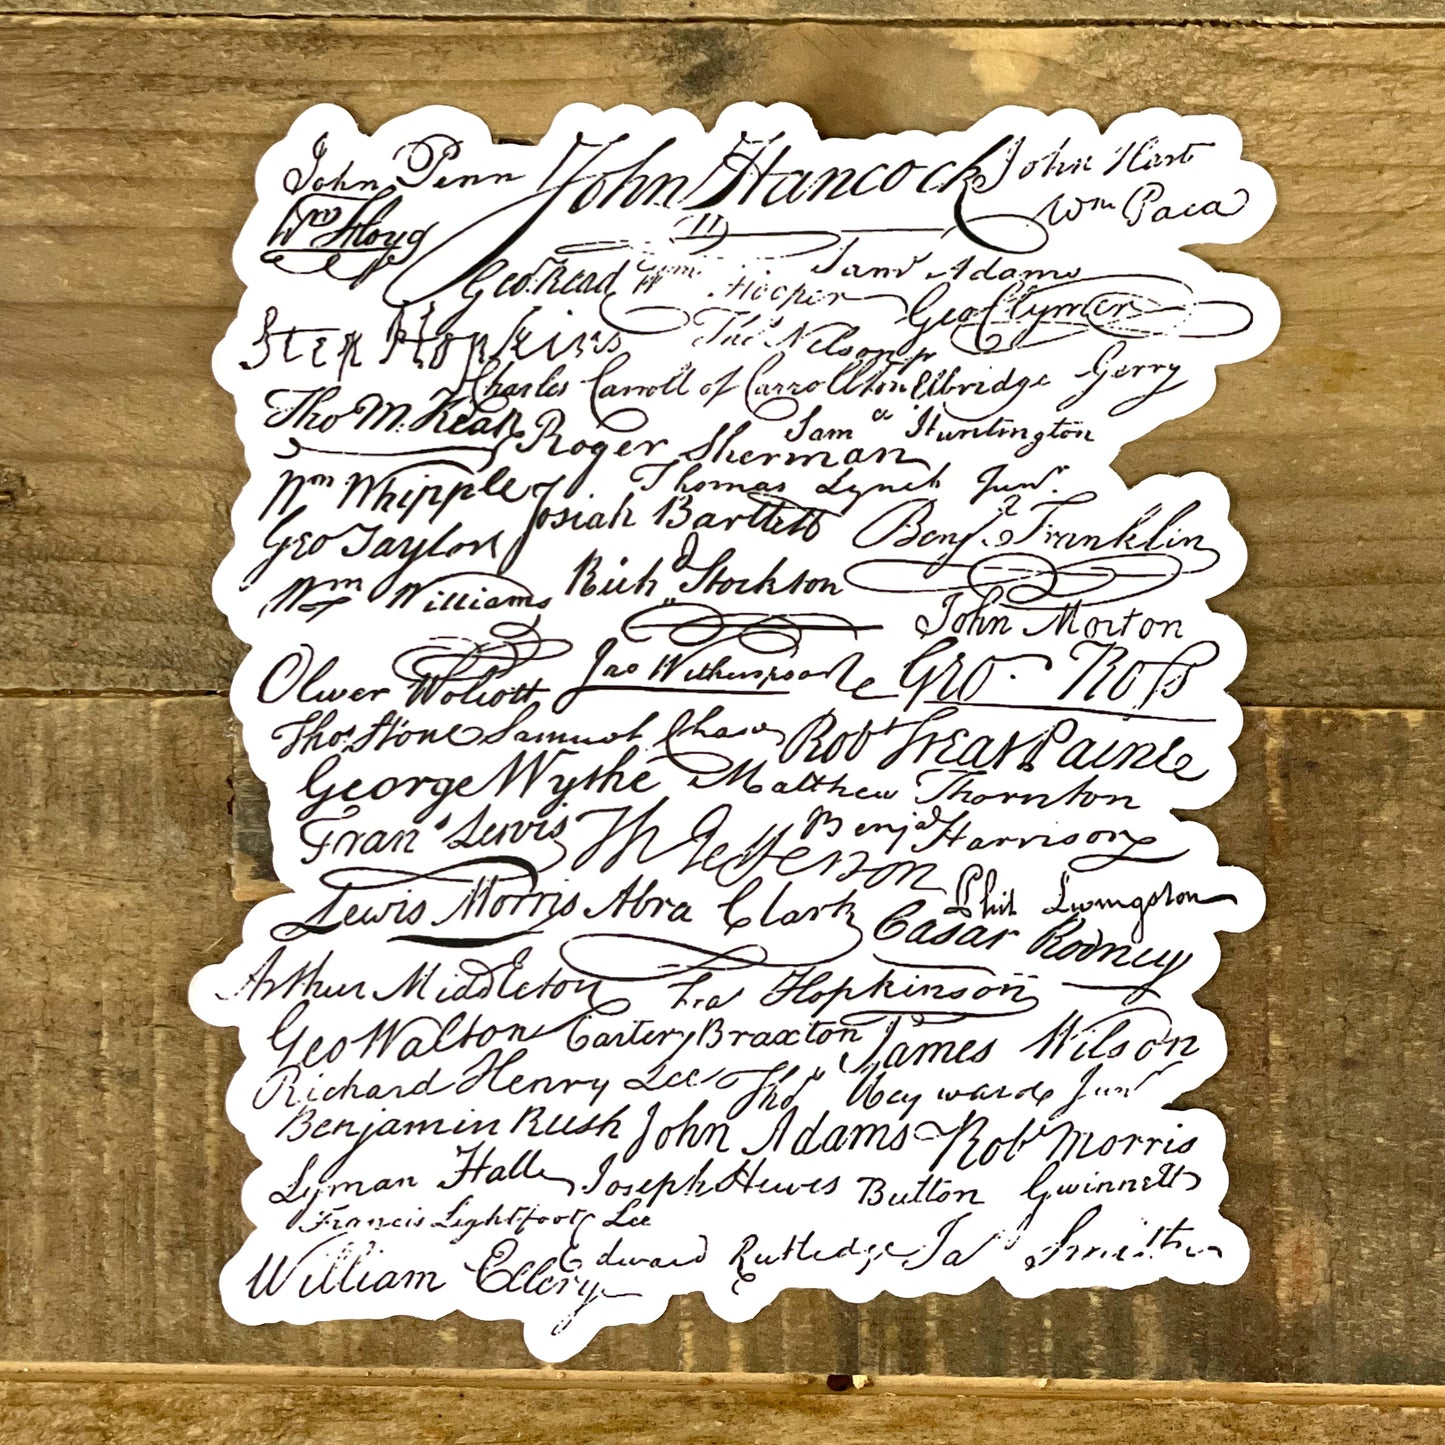 John Penn John Hancock John Hart
Wm Floyd Wm Paca
Geo. Read Wm Hooper Saml Adams
Geo Clymer
Step Hopkins Thos Nelson jr
Charles Carroll of Carrollton Elbridge Gerry
Tho M. Kean Roger Sherman Saml Huntington
Wm Whipple Thomas Lynch Junr.
Josiah Bartlett Benj. Franklin
Geo Taylor
Wm Williams Richd Stockton
John Morton
Oliver Wolcott Jno Witherspoon Geo. Ross
Thos. Stone Samuel Chase Robt Treat Paine
George Wythe Matthew Thornton
Frans Lewis Th Jefferson Benja Harrison
Lewis Morris Abra Clark Phil Livingston
Casar Rodney
Arthur Middleton Fras Hopkinson
Geo Walton Carter Braxton James Wilson
Richard Henry Lee Thos Heyward Junr
Benjamin Rush John Adams Robt Morris
Lyman Hall Joseph Hewes Button Gwinnett
Francis Lightfoot Lee
William Ellery Edward Rutledge Jas Smith